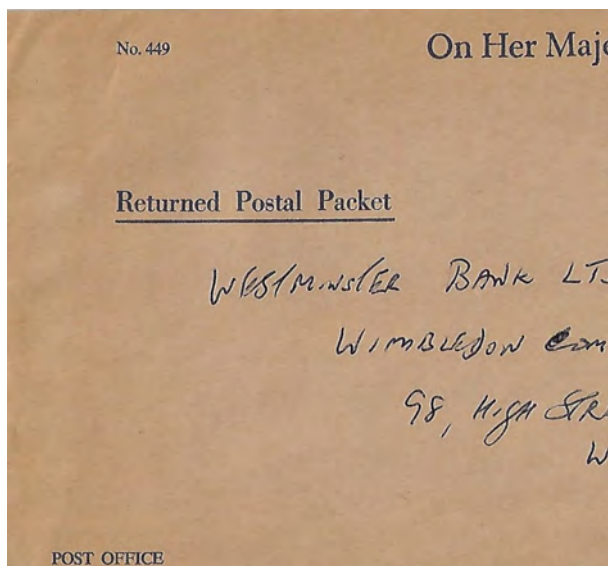 No. 449
On Her Maje
Returned Postal Packet
WESTMINSTER BANK LT
WIMBLEDON COM
98, HIGH STR
W
POST OFFICE